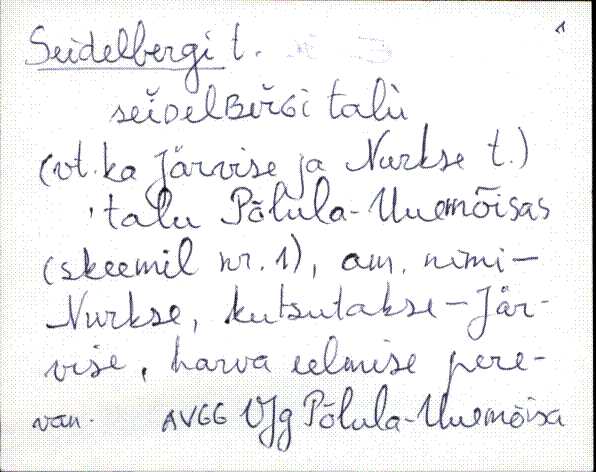 1
Seidelbergi t.
seiDelBerGi talù
(vt. ka Järvise ja Nurkse t.)
'talu Põlula-Uuemõisas
(skeemil nr. 1), am. nimi-
Nurkse, kutsutakse - Jär-
vise, harva eelmise pere-
van. AVGG VJg Põlula-Uuemõisa